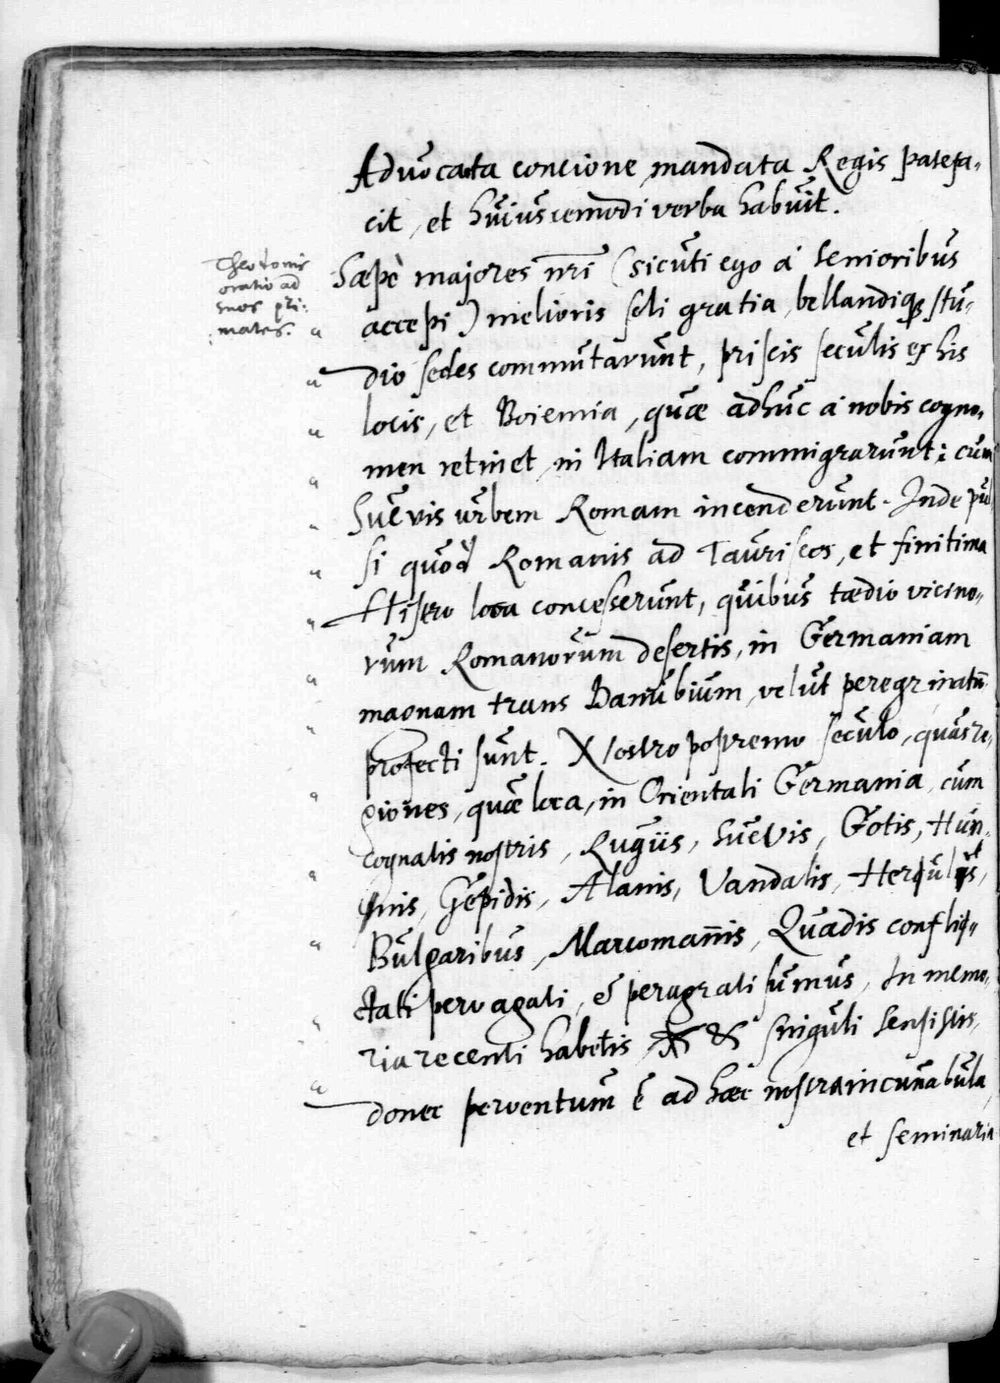 Advocata concione mandata Regis patefa-
cit, et huiuscemodi verba habuit.
Theodonis
oratio ad
suos pri:
mates.
Sæpè majores nr̄i (sicuti ego à senioribus
accepi) melioris soli gratia, bellandiq; stu-
dio sedes commutarunt, priscis seculis ex his
locis, et Boiemia, quæ adhuc à nobis cogno-
men retinet, in Italiam commigrarunt; cum
Suevis urbem Romam incenderunt. Inde pul
si quoq̃ Romanis ad Tauriscos, et finitima
Histro loca concesserunt, quibus tædio vicino-
rum Romanorum desertis, in Germaniam
magnam trans Danubium, velut peregrinatū
profecti sunt. Nostro postremo seculo, quas re-
giones, quæ loca, in Orientali Germania, cum
cognatis nostris, Rugiis, Suevis, Gotis, Hun-
nis, Gepidis, Alanis, Vandalis, Herulis,
Bulgaribus, Marcomañis, Quadis conflic-
tati pervagati, & peragrati sumus, in memo-
ria recenti habetis & singuli sensistis,
donec perventum ē ad hæc nostra incunabula,
et seminaria